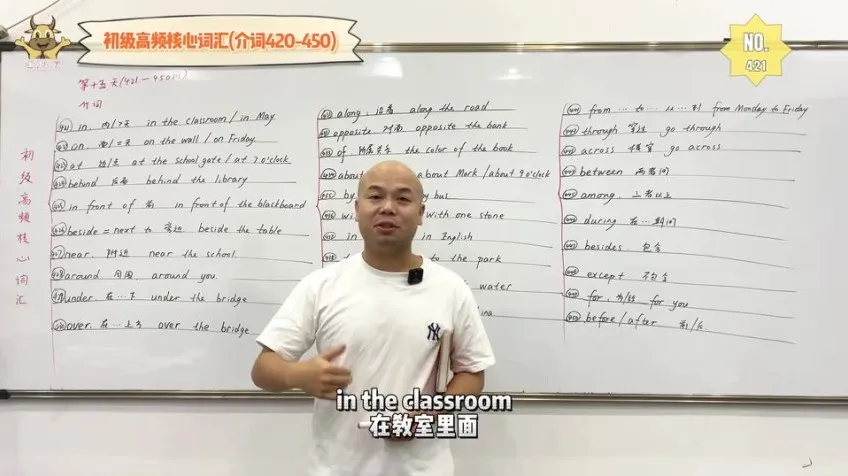 初级高频核心词汇(介词420-450)
NO.
421
第十五天(421-450)
介词
初级高频核心词汇
in. 内/天 in the classroom / in May
on. on the wall / on Friday
at at the school gate / at 7 o'clock
behind 后面 behind the library
in front of 前 in front of the blackboard
beside = next to 旁边 beside the table
near. 附近 near the school
around 周围 around you.
under. 在…下 under the bridge
over. 在…上方 over the bridge
along. 沿着 along the road
opposite 对面 opposite the bank
of 所属关系 the color of the book
about about Mark / about 9 o'clock
by bus
with one stone
in in English
to the park
water
from … to … 从…到 from Monday to Friday
through 穿过 go through
across 横穿 go across
between 两者间
among. 三者以上
during 在…期间
besides 包含
except 不包含
for. for you
before / after 前/后
NY
in the classroom
在教室里面